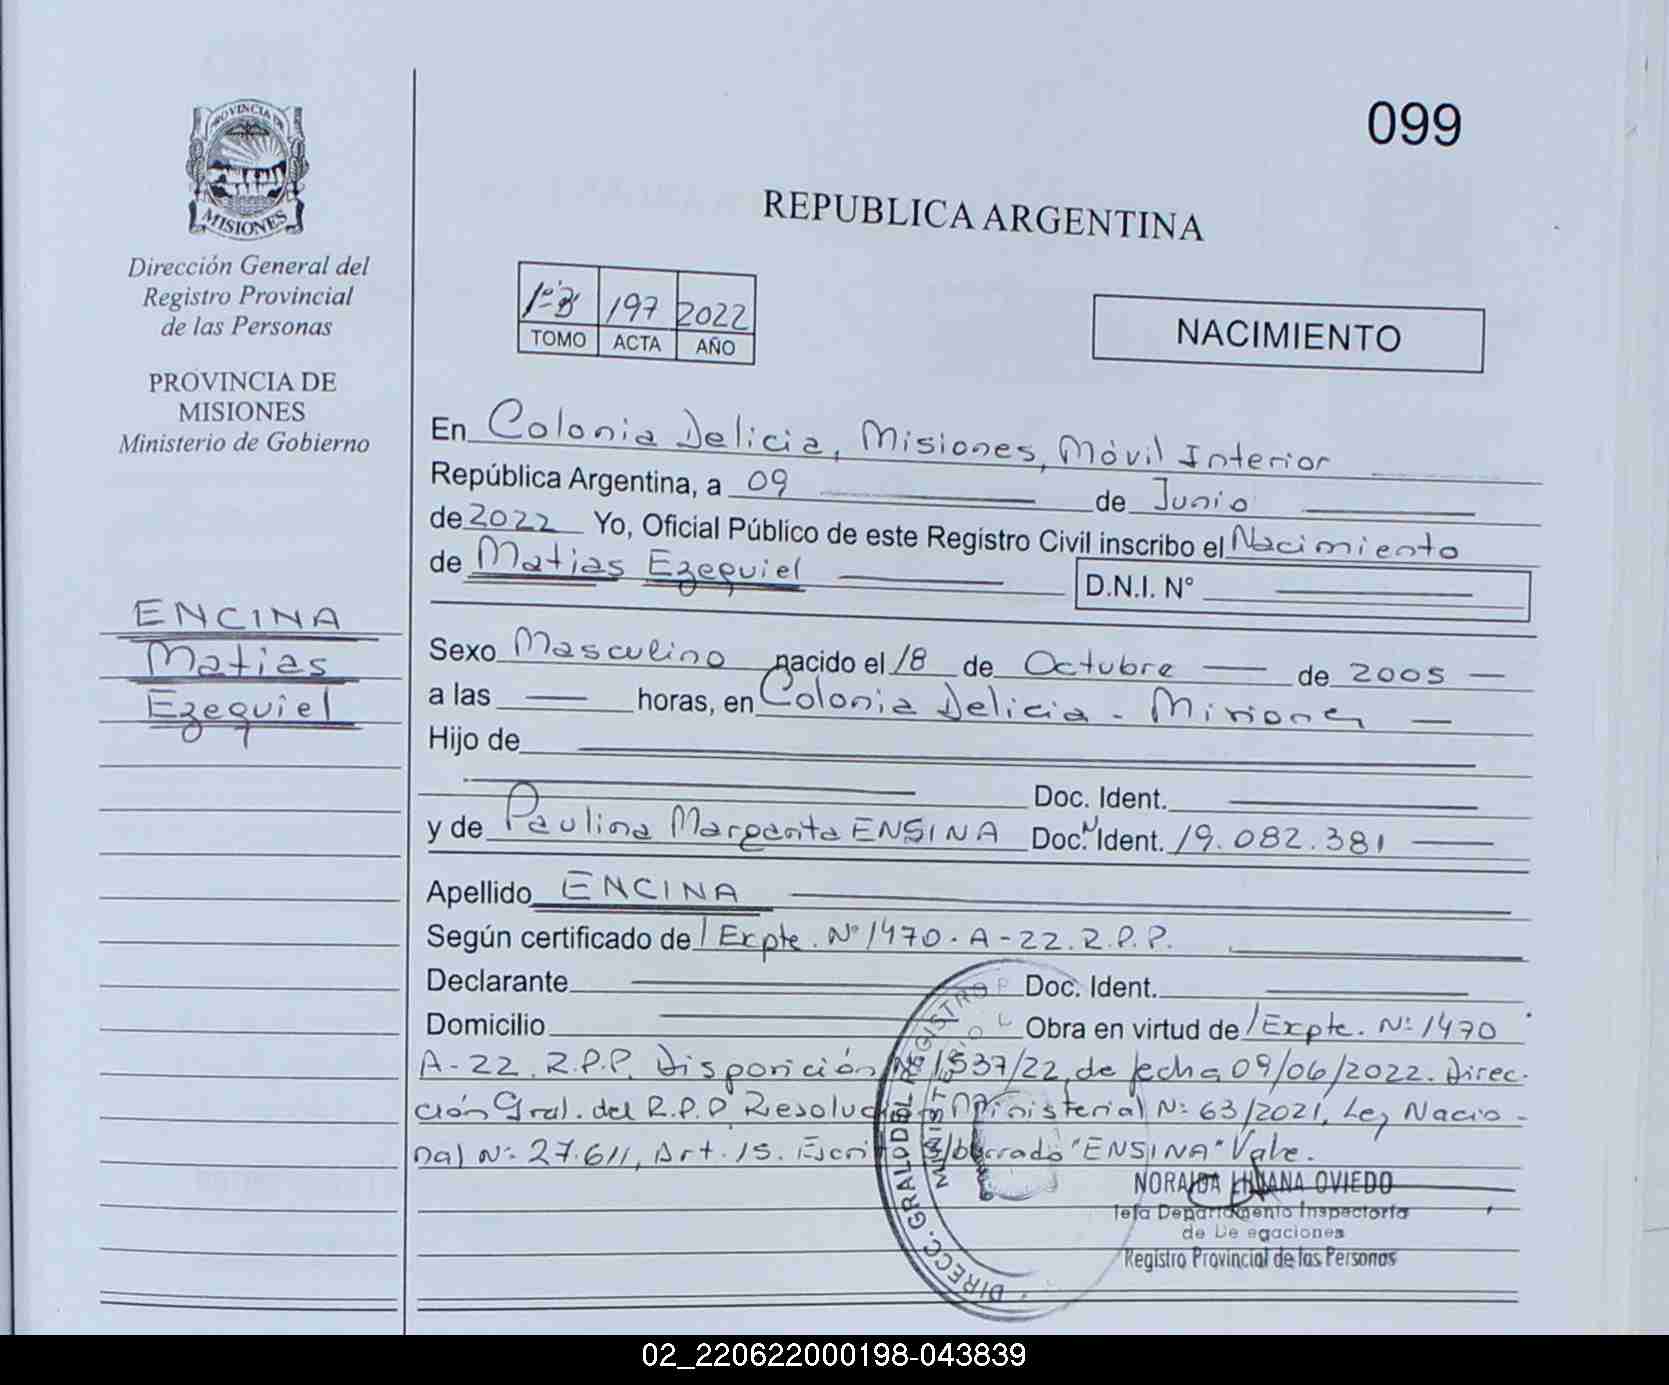 099
PROVINCIA DE
MISIONES
Dirección General del
Registro Provincial
de las Personas
PROVINCIA DE
MISIONES
Ministerio de Gobierno
ENCINA
Matias
Ezequiel
REPUBLICA ARGENTINA
1º B 197 2022
TOMO ACTA AÑO
NACIMIENTO
En Colonia Delicia, Misiones, Móvil Interior
República Argentina, a 09 de Junio
de 2022 Yo, Oficial Público de este Registro Civil inscribo el Nacimiento
de Matias Ezequiel D.N.I. N°
Sexo Masculino nacido el 18 de Octubre de 2005
a las horas, en Colonia Delicia - Misiones
Hijo de
Doc. Ident.
y de Paulina Margarita ENSINA Doc. Ident. 19.082.381
Apellido ENCINA
Según certificado de Expte. Nº 1470-A-22.R.P.P.
Declarante Doc. Ident.
Domicilio Obra en virtud de Expte. Nº 1470
A-22.R.P.P. Disposición Nº 1537/22, de fecha 09/06/2022. Direc-
ción Gral. del R.P.P Resolución Ministerial Nº 63/2021, Ley Nacio-
nal Nº 27.611, Art. 15. Escrito s/borrado "ENSINA" Vale.
DIRECC. GRAL DEL REGISTRO P
NORAIDA LILIANA OVIEDO
Jefa Departamento Inspectoría
de Delegaciones
Registro Provincial de las Personas
02_220622000198-043839